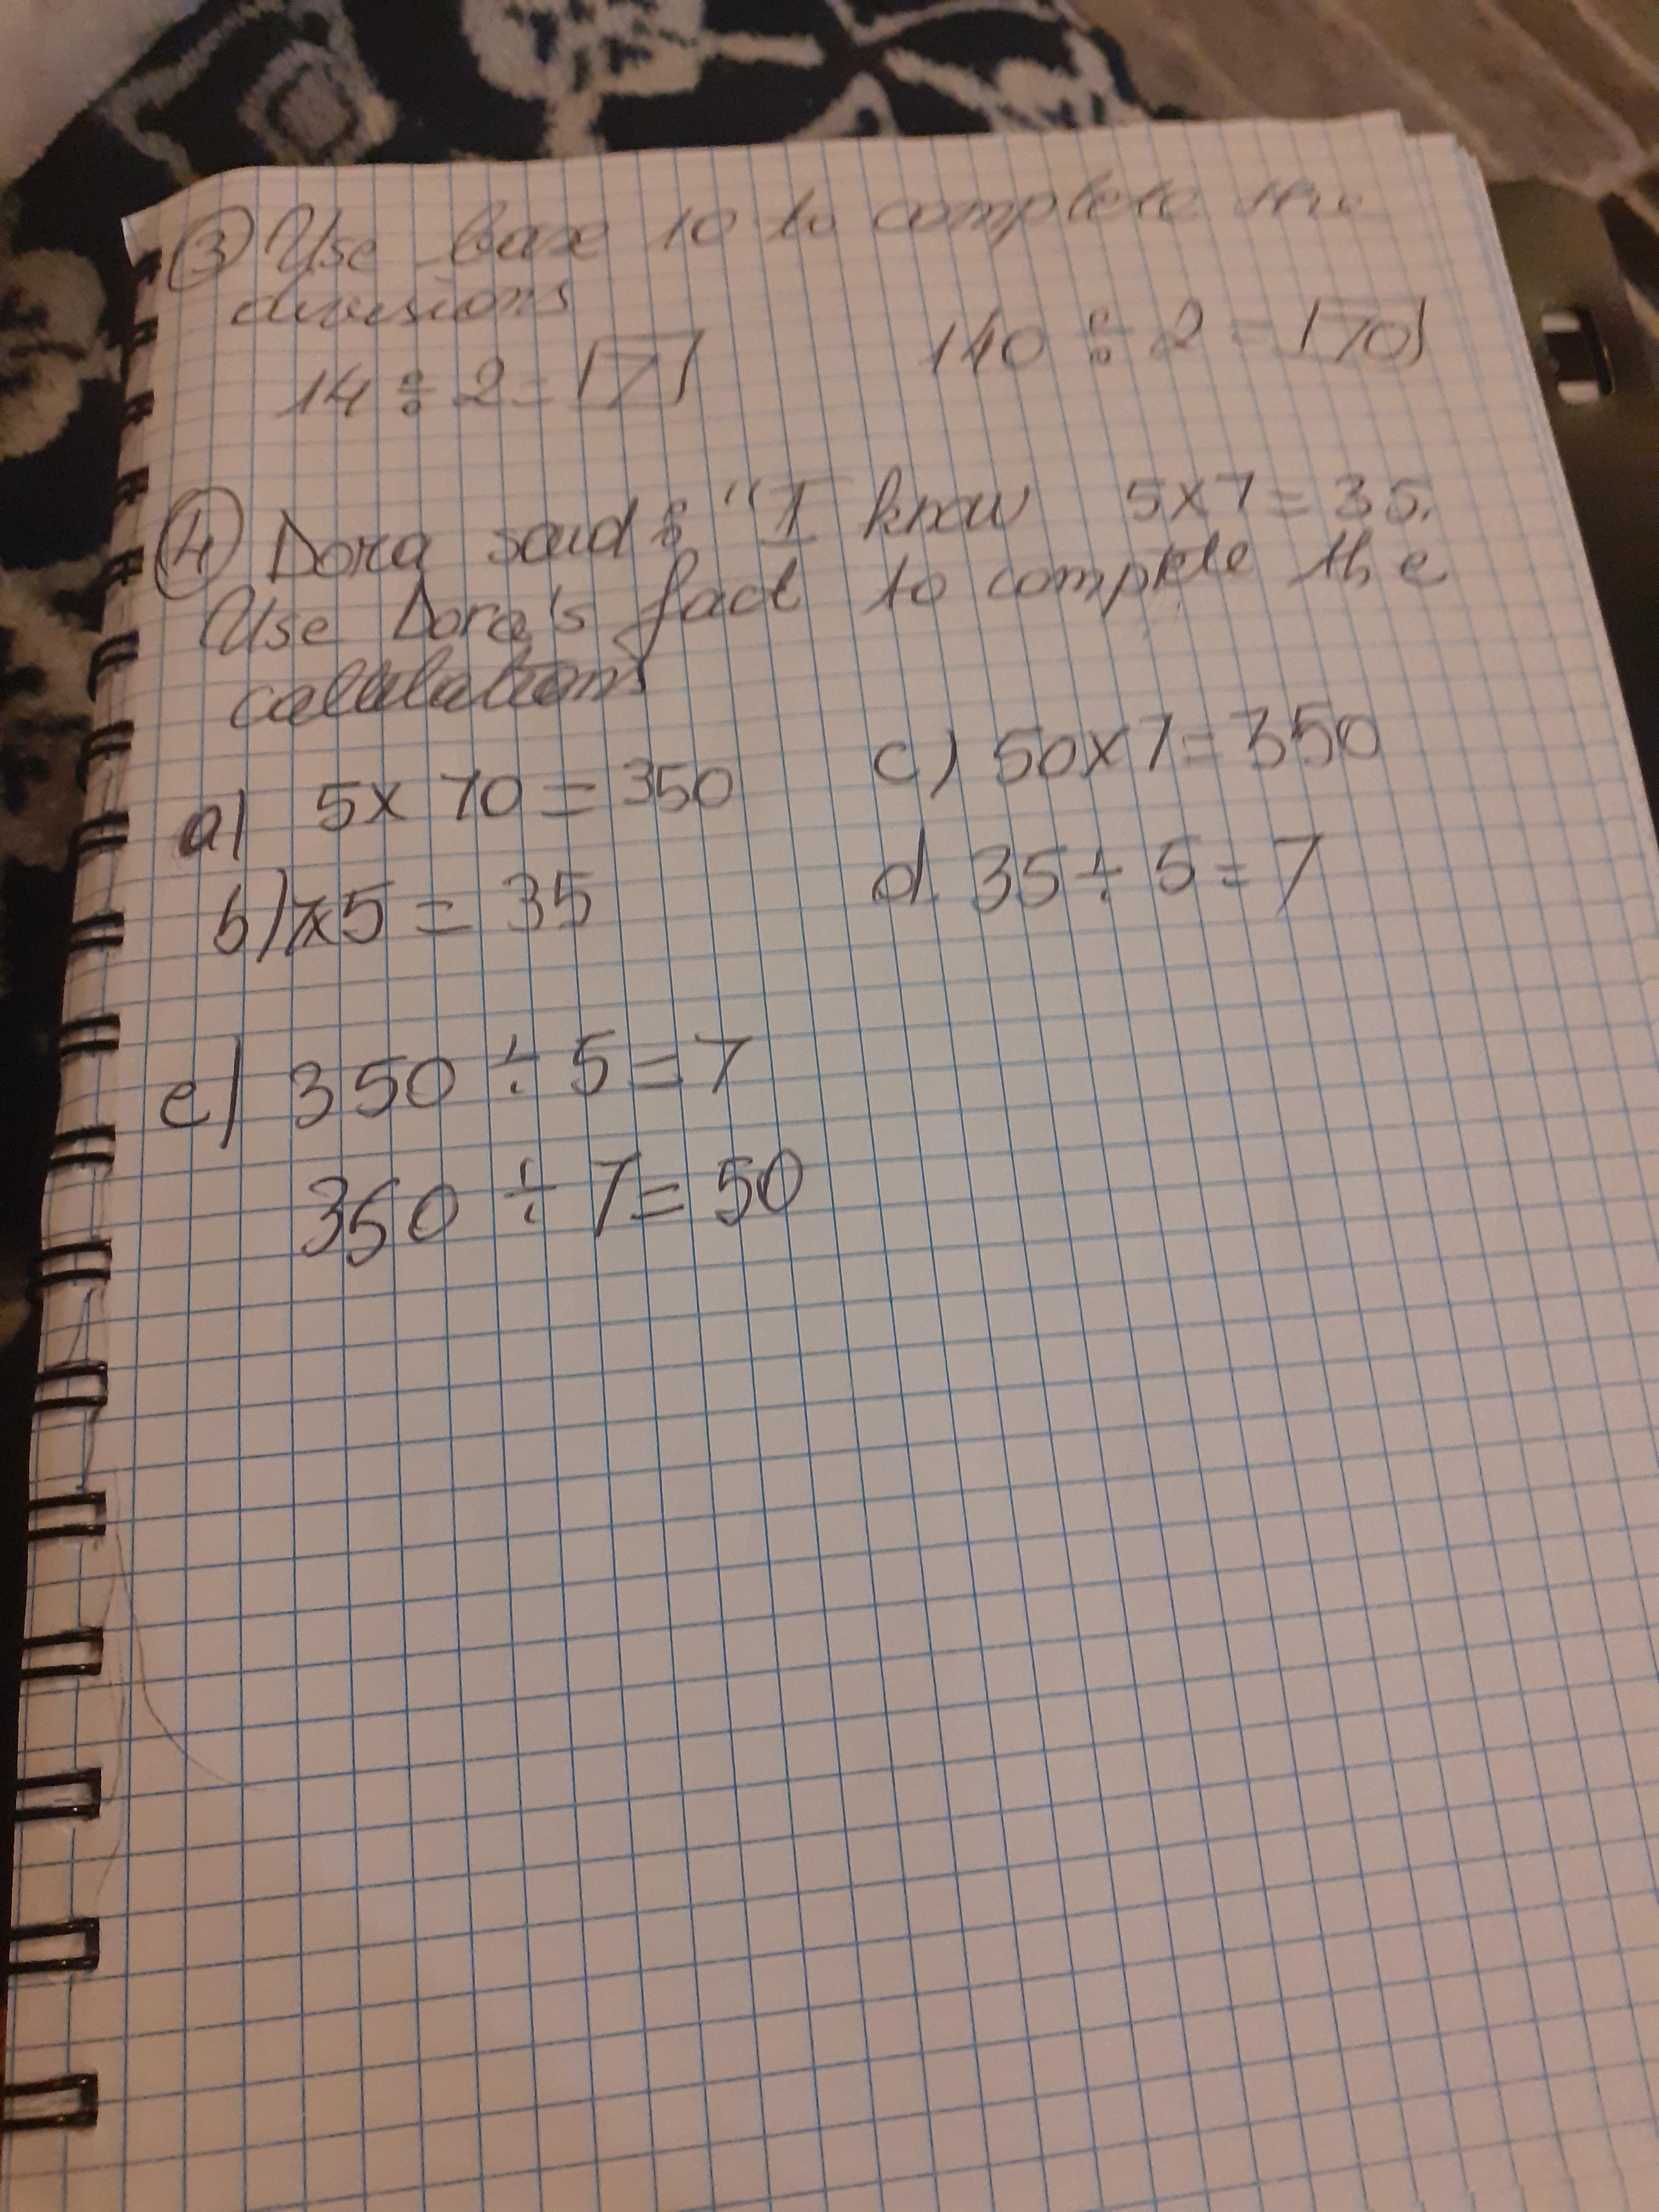 ③ Use base 10 to complete the
divisions
14 ÷ 2 = 7
140 ÷ 2 = 70
④ Dora said: "I know 5x7=35.
Use Dora's fact to complete the
calculations
a) 5x 70 = 350
c) 50x7= 350
b) 7x5 = 35
d. 35 ÷ 5 = 7
e) 350 ÷ 5 = 7
350 ÷ 7 = 50